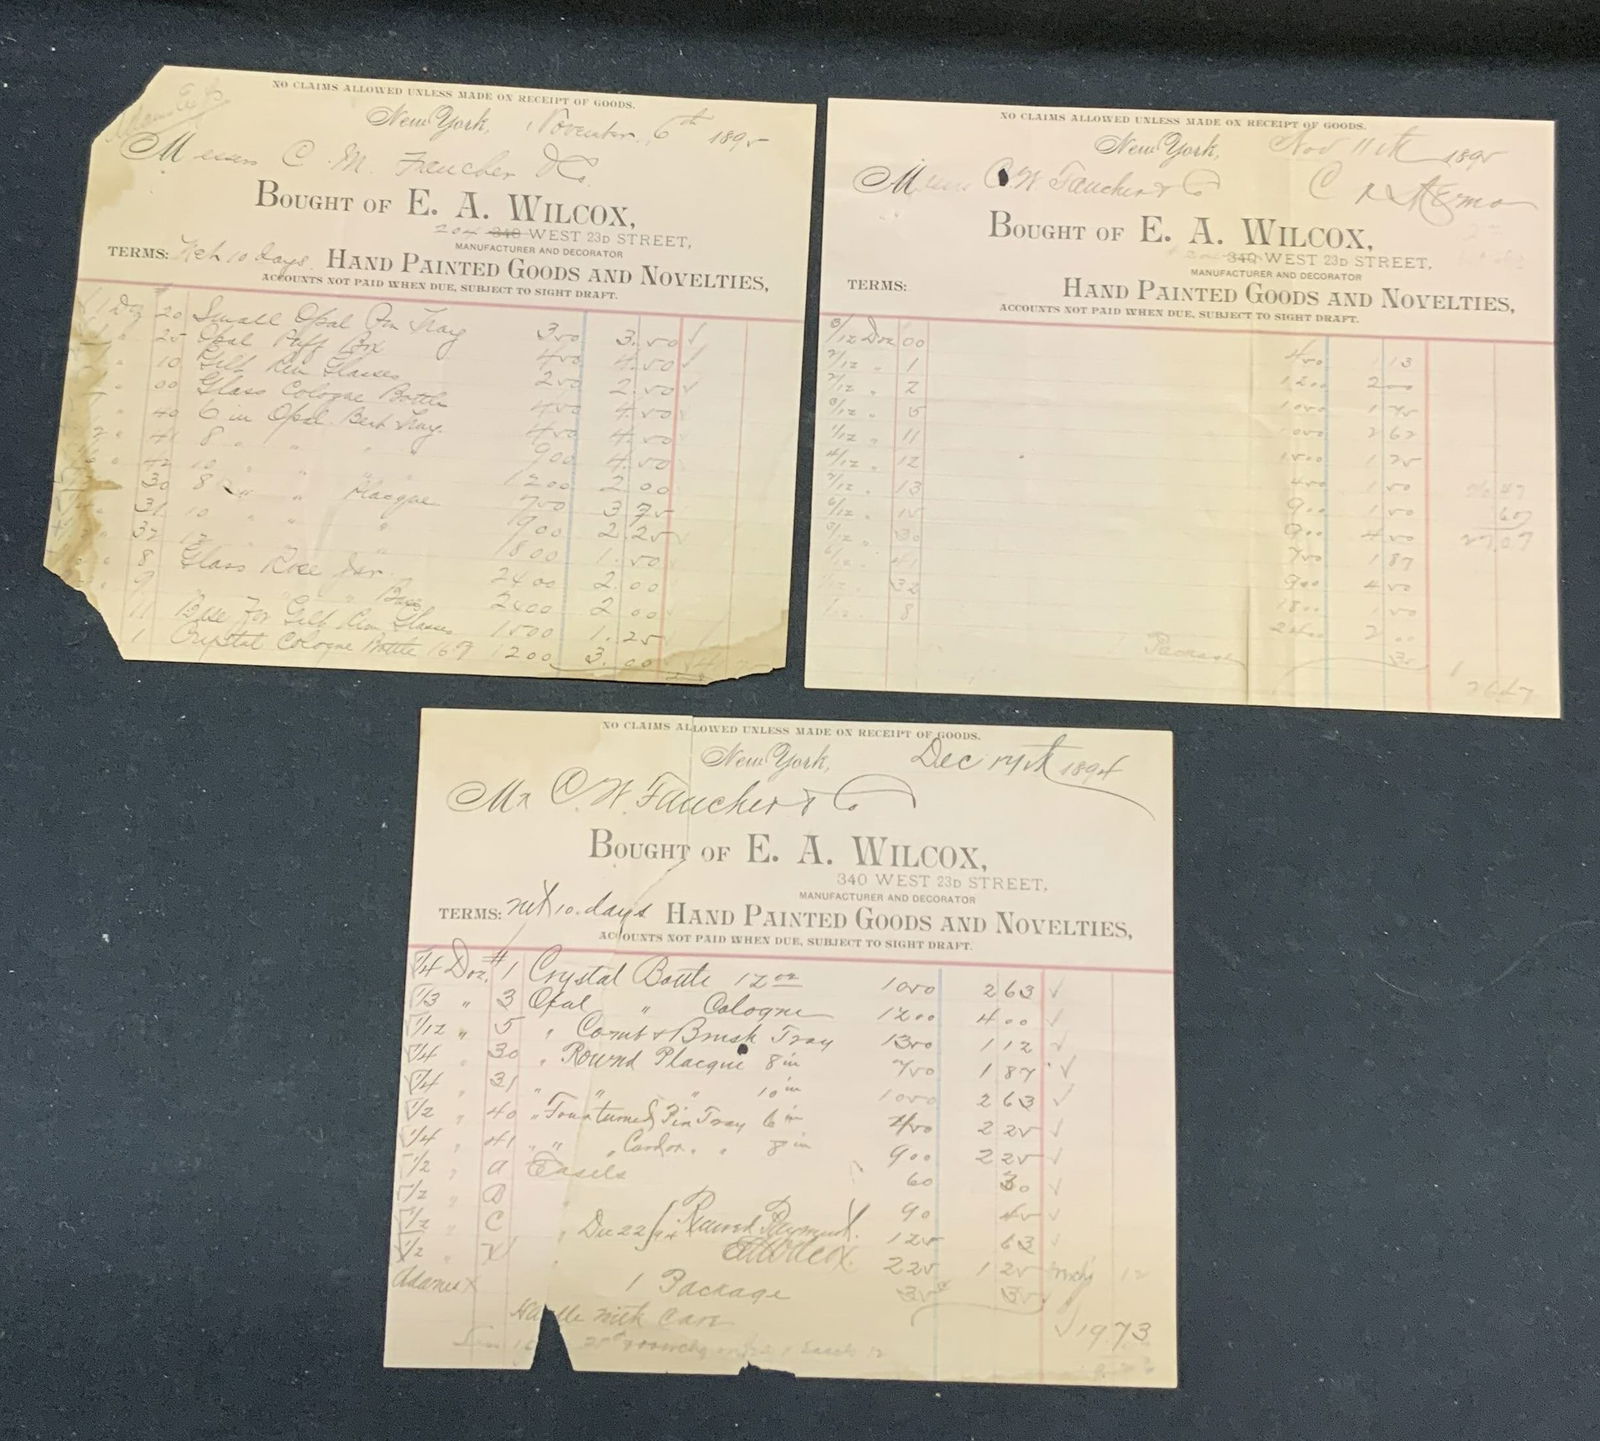 NO CLAIMS ALLOWED UNLESS MADE ON RECEIPT OF GOODS.
New York, November 6th 1895
Messrs C. M. Faucher & Co.
BOUGHT OF E. A. WILCOX,
204 340 WEST 23D STREET,
MANUFACTURER AND DECORATOR
TERMS: Net 10 days. HAND PAINTED GOODS AND NOVELTIES,
ACCOUNTS NOT PAID WHEN DUE, SUBJECT TO SIGHT DRAFT.
1 Doz 20 Small Opal Pin Tray 350 3.50 ✓
" 25 Opal Puff Box 450 4.50 ✓
" 10 Gilt Rim Glasses 250 2.50 ✓
" 00 Glass Cologne Bottle 450 4.50
" 40 6 in Opal Bent Tray. 450 4.50
" 41 8 " " " 900 4.50
" 42 10 " " " 1200 2 00
" 30 8 " " Placque 750 3 75
" 31 10 " " " 900 2.25
" 32 12 " 1800 1.50
" 8 Glass Rose Jar. 2400 2.00
" 9 " " " Base 2400 2 00
" 11 Base For Gilt Rim Glasses 1500 1.25
1 Crystal Cologne Bottle 169 1200 3.00
NO CLAIMS ALLOWED UNLESS MADE ON RECEIPT OF GOODS.
New York, Nov 11th 1895
Messrs C. W. Faucher & Co
BOUGHT OF E. A. WILCOX,
340 WEST 23D STREET,
MANUFACTURER AND DECORATOR
TERMS: HAND PAINTED GOODS AND NOVELTIES,
ACCOUNTS NOT PAID WHEN DUE, SUBJECT TO SIGHT DRAFT.
3/12 Doz 00 450 1 13
2/12 " 1 1200 2 00
2/12 " 2 1050 1 75
3/12 " 5 1050 2 62
1/12 " 11 1500 1 25
4/12 " 12 450 1 50
2/12 " 13 900 1 50
6/12 " 15 900 4 50
3/12 " 30 750 1 87
6/12 " 31 900 4 50
1/12 " 32 1800 1 50
1/12 " 8 2400 2 00
1 Package 35
26 47
60
27.07
26 47
NO CLAIMS ALLOWED UNLESS MADE ON RECEIPT OF GOODS.
New York, Dec 14th 1894
Mr C. W. Faucher & Co
BOUGHT OF E. A. WILCOX,
340 WEST 23D STREET,
MANUFACTURER AND DECORATOR
TERMS: net 10. days HAND PAINTED GOODS AND NOVELTIES,
ACCOUNTS NOT PAID WHEN DUE, SUBJECT TO SIGHT DRAFT.
1/4 Doz. #1 Crystal Bottle 12 oz 1050 2 63 ✓
1/3 " 3 Opal " Cologne 1200 4 00 ✓
1/12 " 5 " Comb & Brush Tray 1350 1 12 ✓
1/4 " 30 " Round Placque 8 in 750 1 87 ✓
1/4 31 " " " 10 in 1050 2 63 ✓
1/2 " 40 " Four turned Pin Tray 6 in 450 2 25 ✓
1/4 " 41 " " " Card or. " " 8 in 900 2 25 ✓
1/2 " A Easels 60 30 ✓
1/2 " B " 90 45 ✓
1/2 " C " 125 63 ✓
Dec 22/94 Received Payment.
E A Wilcox.
1/2 " X " 225 1 25
Adams X 1 Package 35 35
Handle with Care
✓19.73